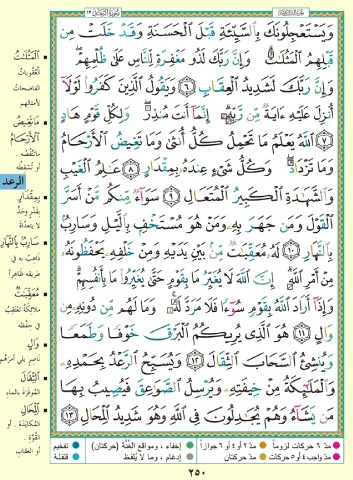 سورة الرعد ١٣
وَيَسْتَعْجِلُونَكَ بِٱلسَّيِّئَةِ قَبْلَ ٱلْحَسَنَةِ وَقَدْ خَلَتْ مِن
قَبْلِهِمُ ٱلْمَثُلَٰتُ ۗ وَإِنَّ رَبَّكَ لَذُو مَغْفِرَةٍ لِّلنَّاسِ عَلَىٰ ظُلْمِهِمْ ۖ
وَإِنَّ رَبَّكَ لَشَدِيدُ ٱلْعِقَابِ ٦ وَيَقُولُ ٱلَّذِينَ كَفَرُوا۟ لَوْلَآ
أُنزِلَ عَلَيْهِ ءَايَةٌ مِّن رَّبِّهِۦٓ ۗ إِنَّمَآ أَنتَ مُنذِرٌ ۖ وَلِكُلِّ قَوْمٍ هَادٍ
٧ ٱللَّهُ يَعْلَمُ مَا تَحْمِلُ كُلُّ أُنثَىٰ وَمَا تَغِيضُ ٱلْأَرْحَامُ
وَمَا تَزْدَادُ ۖ وَكُلُّ شَىْءٍ عِندَهُۥ بِمِقْدَارٍ ٨ عَٰلِمُ ٱلْغَيْبِ
وَٱلشَّهَٰدَةِ ٱلْكَبِيرُ ٱلْمُتَعَالِ ٩ سَوَآءٌ مِّنكُم مَّنْ أَسَرَّ
ٱلْقَوْلَ وَمَن جَهَرَ بِهِۦ وَمَنْ هُوَ مُسْتَخْفٍۭ بِٱلَّيْلِ وَسَارِبٌۢ
بِٱلنَّهَارِ ١٠ لَهُۥ مُعَقِّبَٰتٌ مِّنۢ بَيْنِ يَدَيْهِ وَمِنْ خَلْفِهِۦ يَحْفَظُونَهُۥ
مِنْ أَمْرِ ٱللَّهِ ۗ إِنَّ ٱللَّهَ لَا يُغَيِّرُ مَا بِقَوْمٍ حَتَّىٰ يُغَيِّرُوا۟ مَا بِأَنفُسِهِمْ ۗ
وَإِذَآ أَرَادَ ٱللَّهُ بِقَوْمٍ سُوٓءًا فَلَا مَرَدَّ لَهُۥ ۚ وَمَا لَهُم مِّن دُونِهِۦ مِن
وَالٍ ١١ هُوَ ٱلَّذِى يُرِيكُمُ ٱلْبَرْقَ خَوْفًا وَطَمَعًا
وَيُنشِئُ ٱلسَّحَابَ ٱلثِّقَالَ ١٢ وَيُسَبِّحُ ٱلرَّعْدُ بِحَمْدِهِۦ
وَٱلْمَلَٰٓئِكَةُ مِنْ خِيفَتِهِۦ وَيُرْسِلُ ٱلصَّوَٰعِقَ فَيُصِيبُ بِهَا
مَن يَشَآءُ وَهُمْ يُجَٰدِلُونَ فِى ٱللَّهِ وَهُوَ شَدِيدُ ٱلْمِحَالِ ١٣
المَثُلَاتُ
العقوبات
الفاضحات
لأمثالهم
مَا تَغِيضُ
الأَرْحَامُ
ما تنقصه
أو تسقطه
الرعد
بِمِقْدَارٍ
بقدر وحدّ
لا يتعدّاه
سَارِبٌ بِالنَّهَارِ
ذاهب به في
طريقه ظاهراً
مُعَقِّبَاتٌ
ملائكة تعتقب
في حفظه
وَالٍ
ناصر يلي أمرهم
الثِّقَالَ
الموقرة بالماء
المِحَالِ
المكايدة، أو
القوة
أو العقاب
مدّ ٦ حركات لزوماً مدّ ٢ أو ٤ أو ٦ جوازاً إخفاء، ومواقع الغُنَّة (حركتان) تفخيم
مدّ واجب ٤ أو ٥ حركات مدّ حركتان إدغام، وما لا يُلفظ قلقلة
٢٥٠